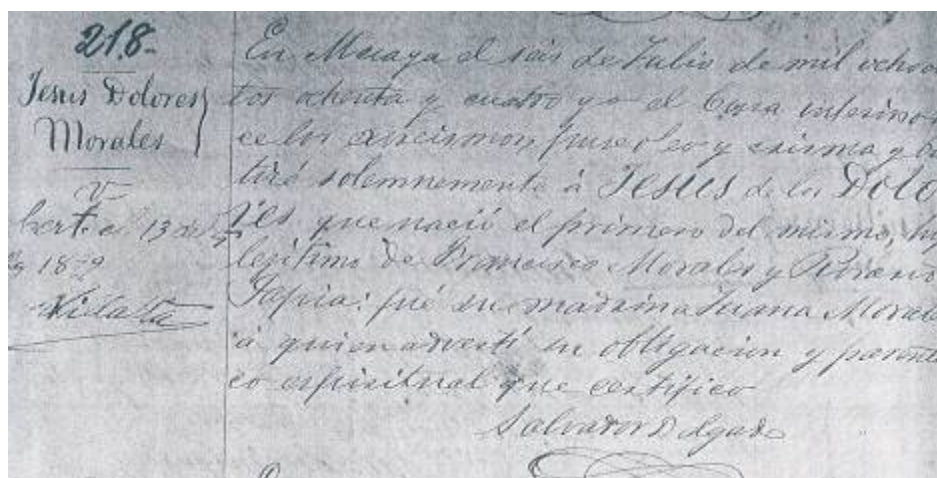 218.
Jesus Dolores
Morales
V
Cert. a 13 de
1879
En Macaya el seis de Julio de mil ochoci
tos ochenta y cuatro yo el Cura interino
ce los exorcismos puse oleo y crisma y bau
ticé solemnemente à Jesus de los Dolo
res que nació el primero del mismo, hijo
legítimo de Francisco Morales y Rosario
Tapia: fué su madrina Juana Morales
à quien advertí su obligacion y parentes
co espiritual que certifico
Salvador Delgado